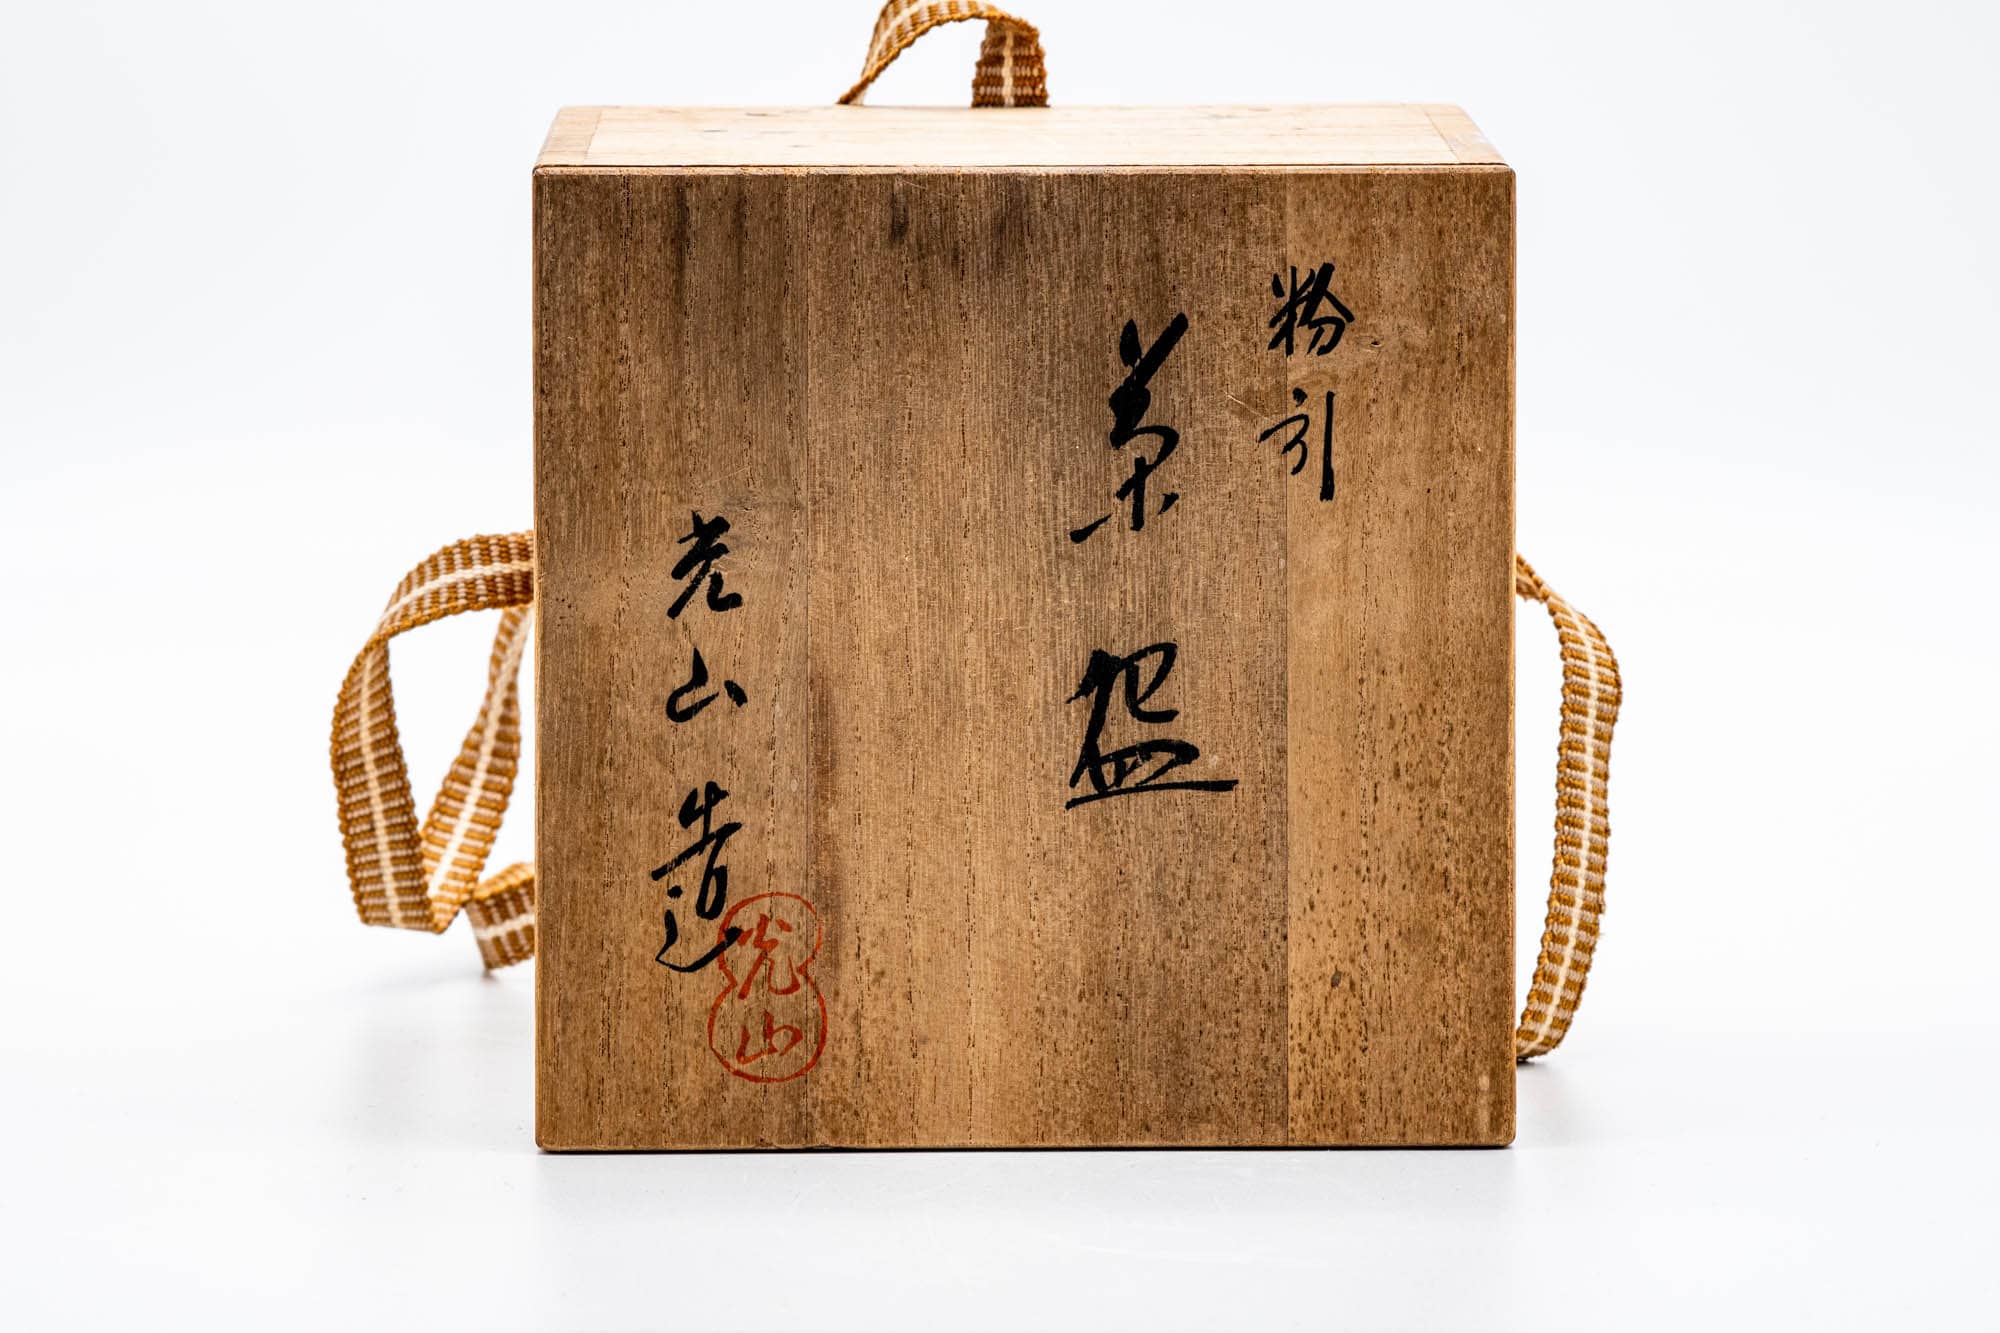 粉引
茶盌
光山造
光山